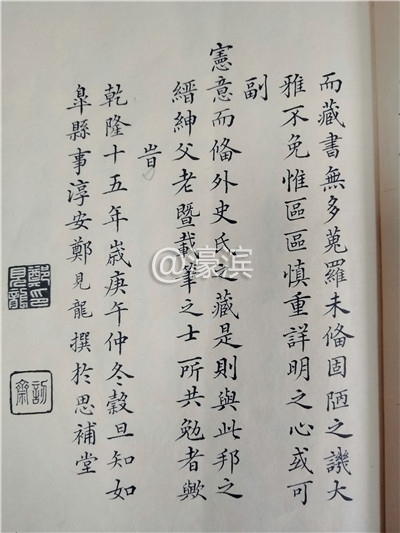 而藏書無多蒐羅未俻固陋之譏大
雅不免惟區區慎重詳明之心或可
副
憲意而俻外史氏之藏是則與此邦之
縉紳父老暨載筆之士所共勉者歟
旹
乾隆十五年歲庚午仲冬穀旦知如
皐縣事淳安鄭見龍撰於思補堂
鄭印
見龍
@濠滨